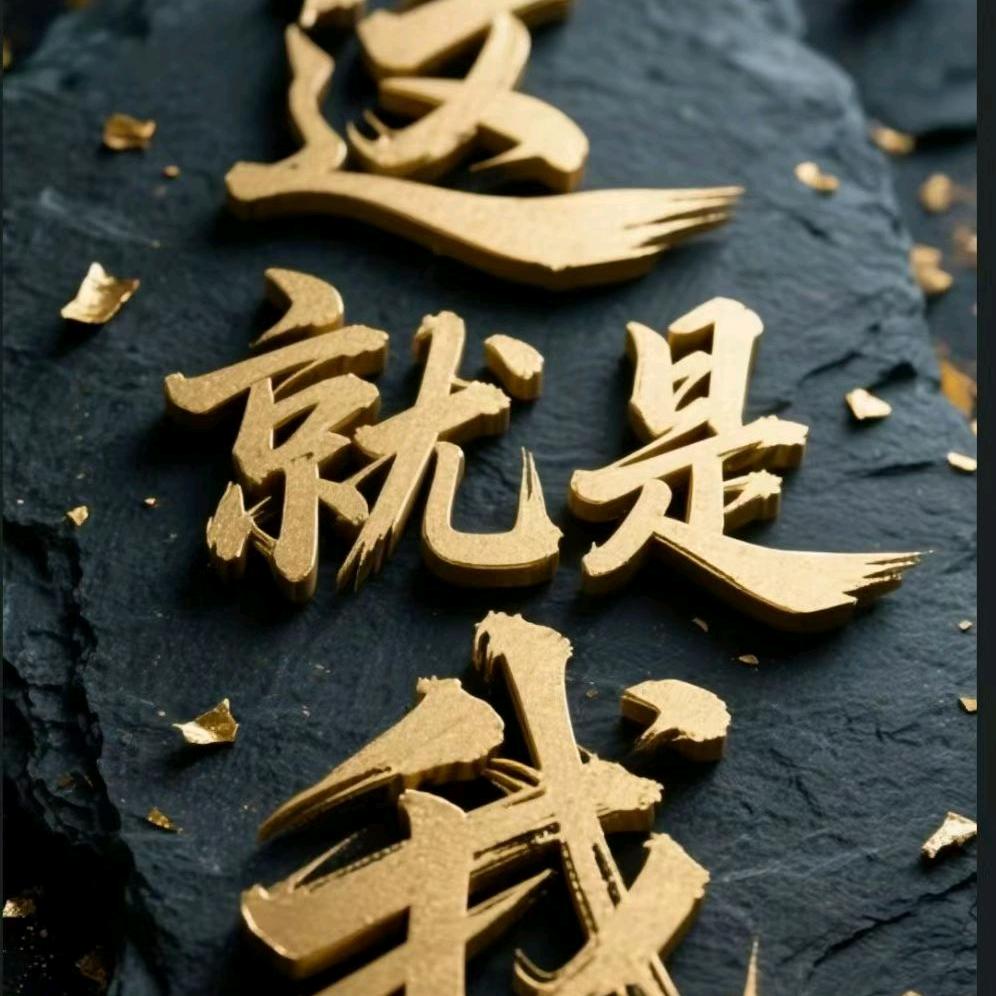 这
就是
我